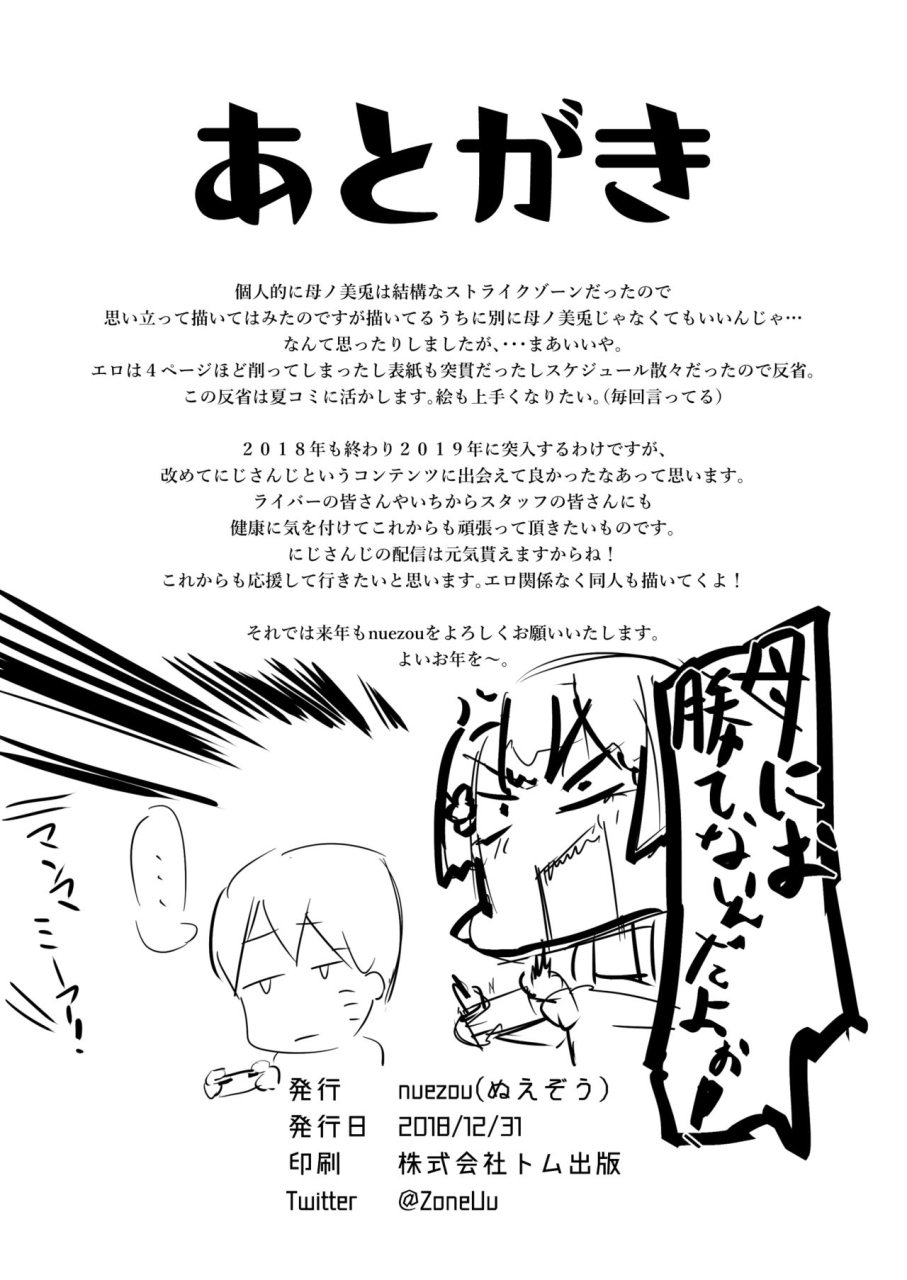 あとがき
個人的に母ノ美兎は結構なストライクゾーンだったので
思い立って描いてはみたのですが描いてるうちに別に母ノ美兎じゃなくてもいいんじゃ…
なんて思ったりしましたが、・・・まあいいや。
エロは４ページほど削ってしまったし表紙も突貫だったしスケジュール散々だったので反省。
この反省は夏コミに活かします。絵も上手くなりたい。（毎回言ってる）
２０１８年も終わり２０１９年に突入するわけですが、
改めてにじさんじというコンテンツに出会えて良かったなあって思います。
ライバーの皆さんやいちからスタッフの皆さんにも
健康に気を付けてこれからも頑張って頂きたいものです。
にじさんじの配信は元気貰えますからね！
これからも応援して行きたいと思います。エロ関係なく同人も描いてくよ！
それでは来年もnuezouをよろしくお願いいたします。
よいお年を〜。
母にはお
勝てないんだよぉ！
...
マンマミーア！！
発行 nuezou(ぬえぞう)
発行日 2018/12/31
印刷 株式会社トム出版
Twitter @ZoneUu